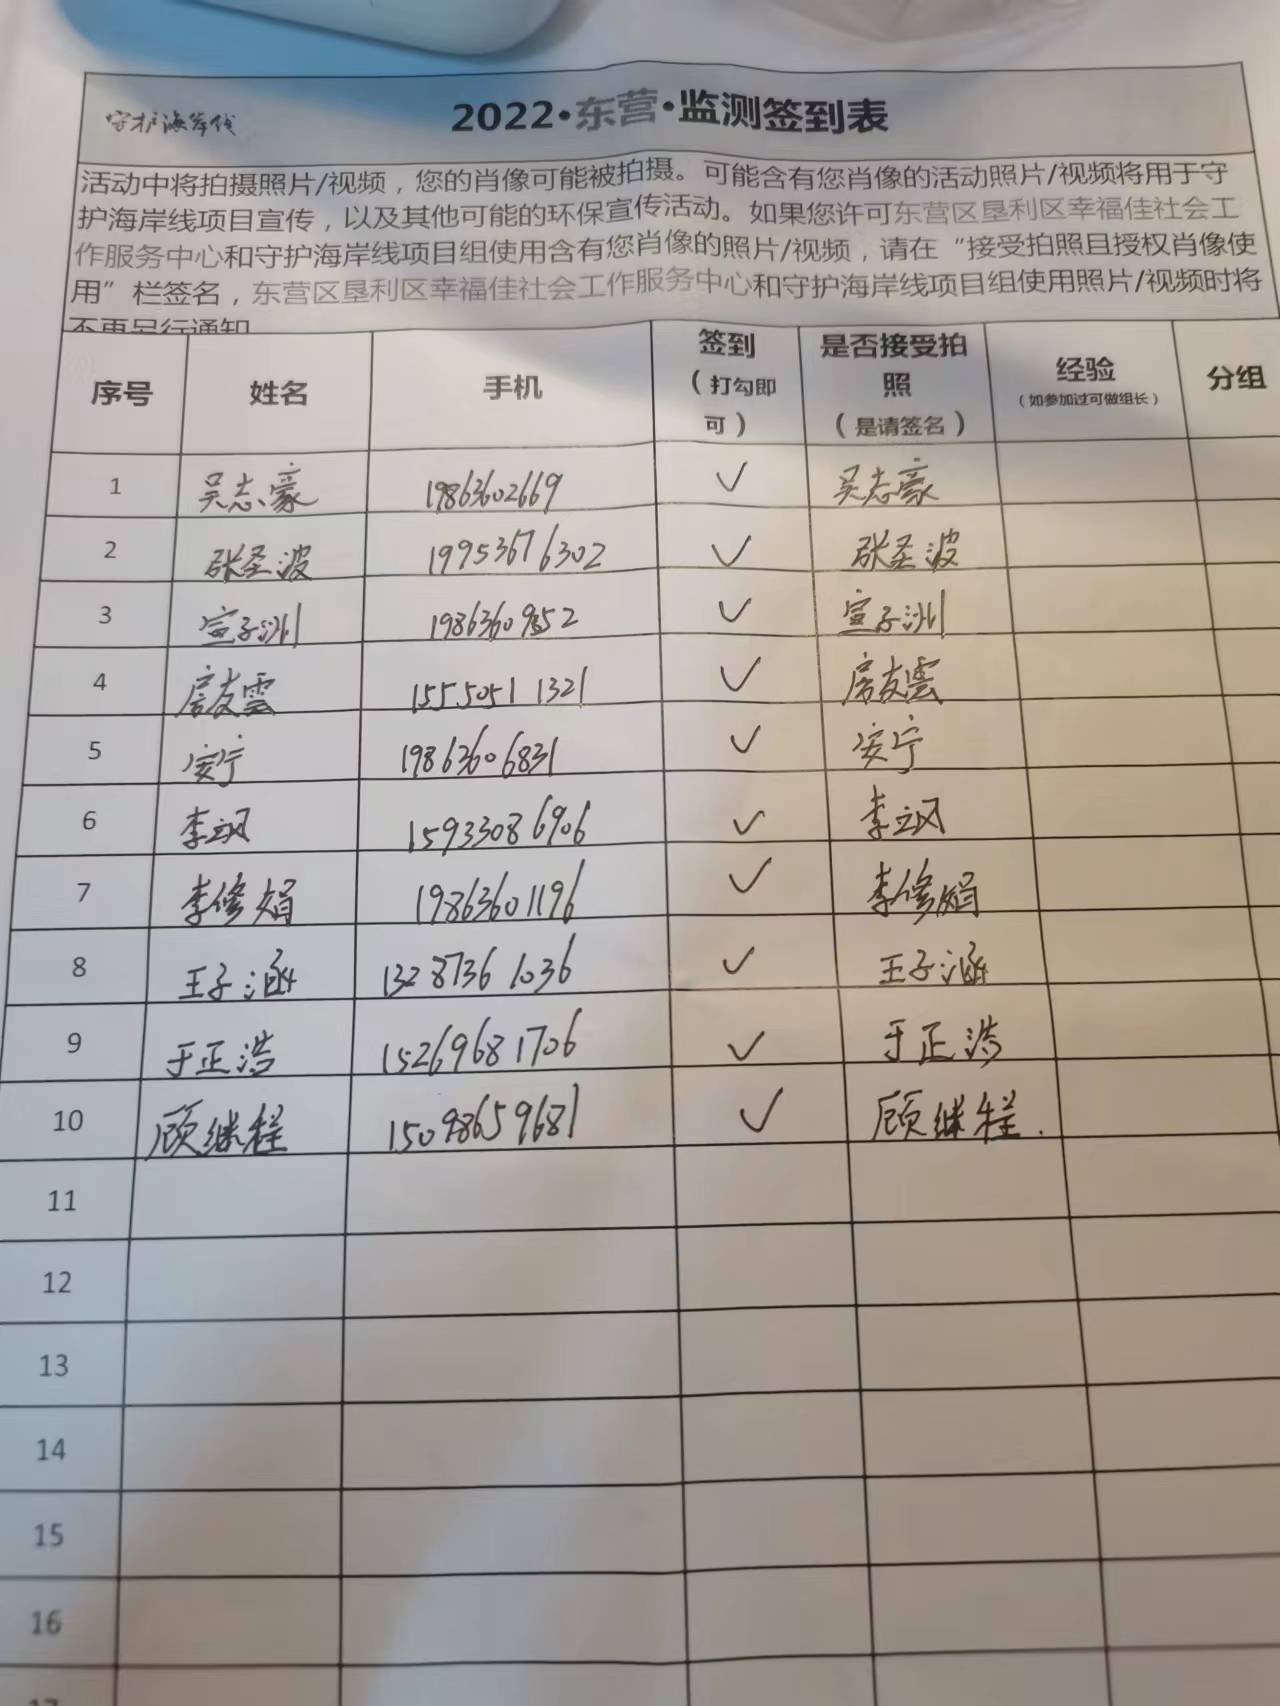 守护海岸线
2022·东营·监测签到表
活动中将拍摄照片/视频，您的肖像可能被拍摄。可能含有您肖像的活动照片/视频将用于守
护海岸线项目宣传，以及其他可能的环保宣传活动。如果您许可东营区垦利区幸福佳社会工
作服务中心和守护海岸线项目组使用含有您肖像的照片/视频，请在“接受拍照且授权肖像使
用”栏签名，东营区垦利区幸福佳社会工作服务中心和守护海岸线项目组使用照片/视频时将
不再另行通知
序号 姓名 手机 签到（打勾即可） 是否接受拍照（是请签名） 经验（如参加过可做组长） 分组
1 吴志豪 19863602669 ✓ 吴志豪
2 张圣波 19953676302 ✓ 张圣波
3 宣子洲 ✓ 宣子洲
4 房友雲 15550511321 ✓ 房友雲
5 安宁 19863606831 ✓ 安宁
6 李飒 15933086906 ✓ 李飒
7 李修娟 19863601196 ✓ 李修娟
8 王子涵 13287361036 ✓ 王子涵
9 于正浩 15269681706 ✓ 于正浩
10 顾继程 15098659681 ✓ 顾继程.
11
12
13
14
15
16
17